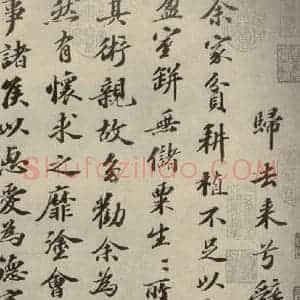 歸去来兮辭
余家貧耕植不足以
盈室缾無儲粟生〻所
其術親故多勸余為
然有懷求之靡塗會
事諸侯以惠愛為德家
Shufaziliao.com